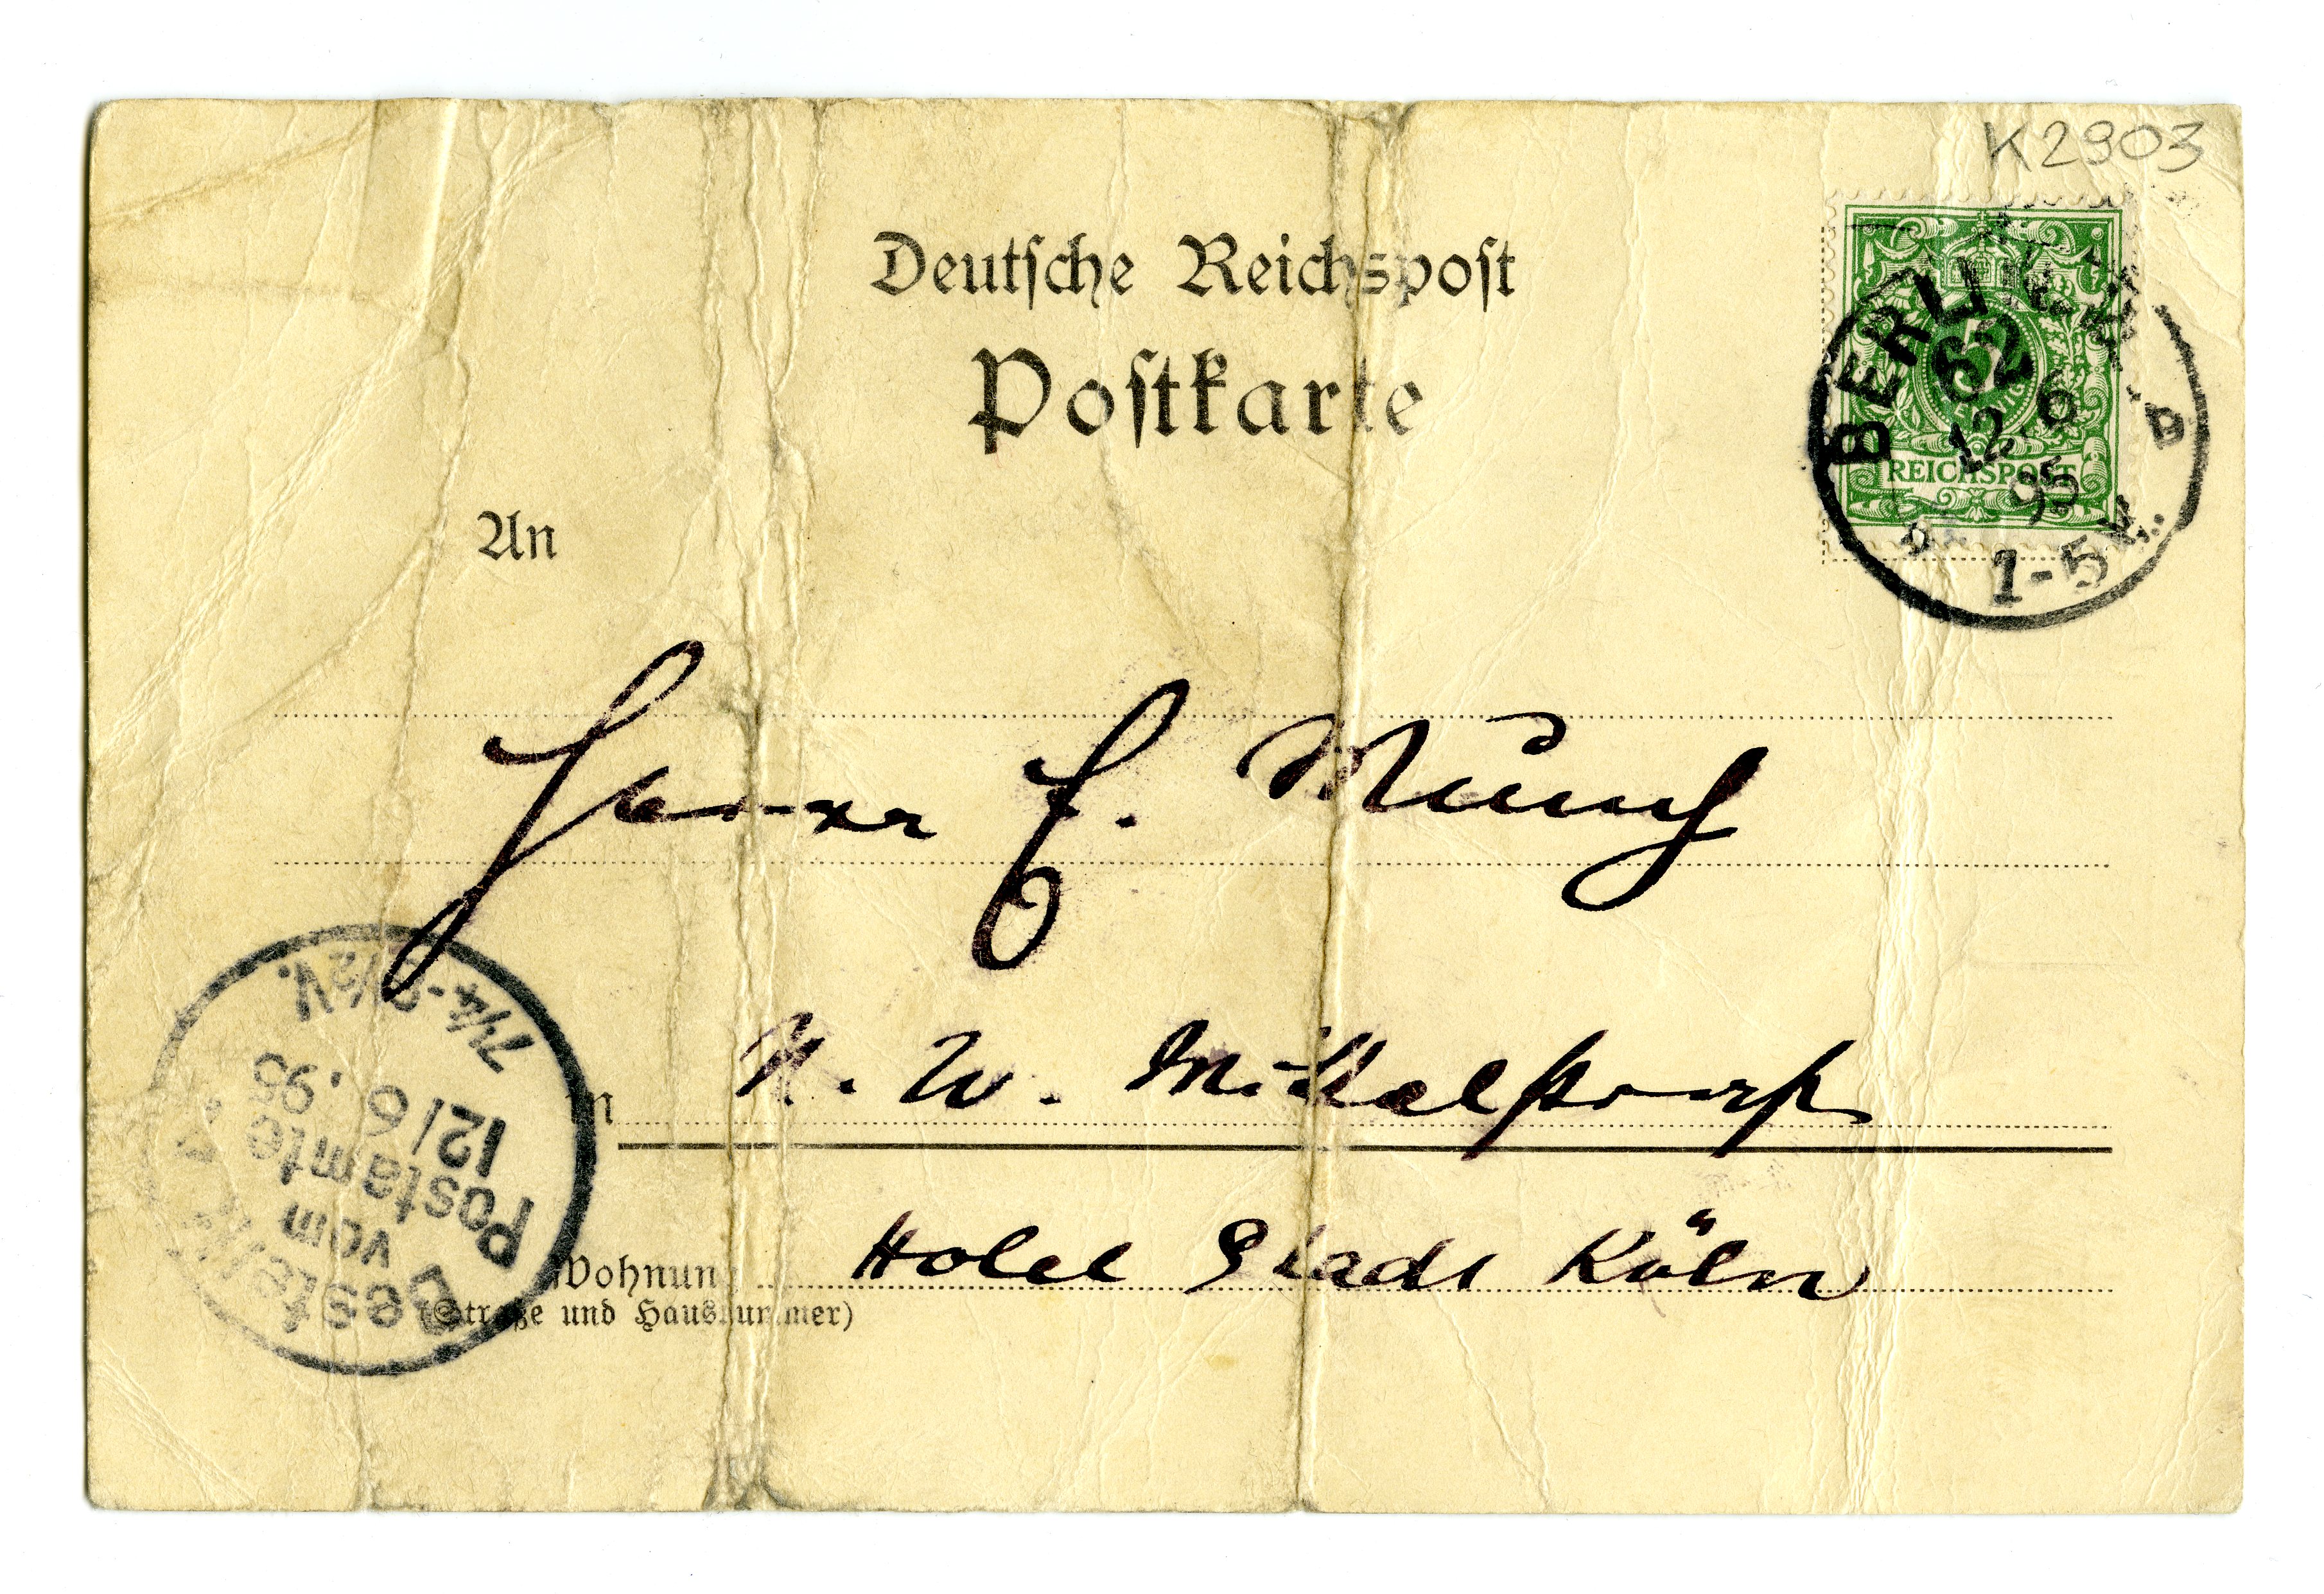 K2903
Deutsche Reichspost
Postkarte
BERLIN
62
12.6
95
1-5N.
REICHSPOST
An
Herrn E. Munch
N. W. Mittelstrasse
in
Hotel Stadt Köln
Wohnung
(Straße und Hausnummer)
Bestellt
vom
Postamte
12/6.95
7¼-8½V.